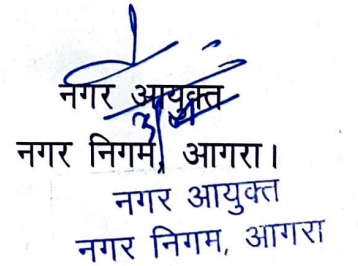 नगर आयुक्त
नगर निगम, आगरा।
नगर आयुक्त
नगर निगम, आगरा